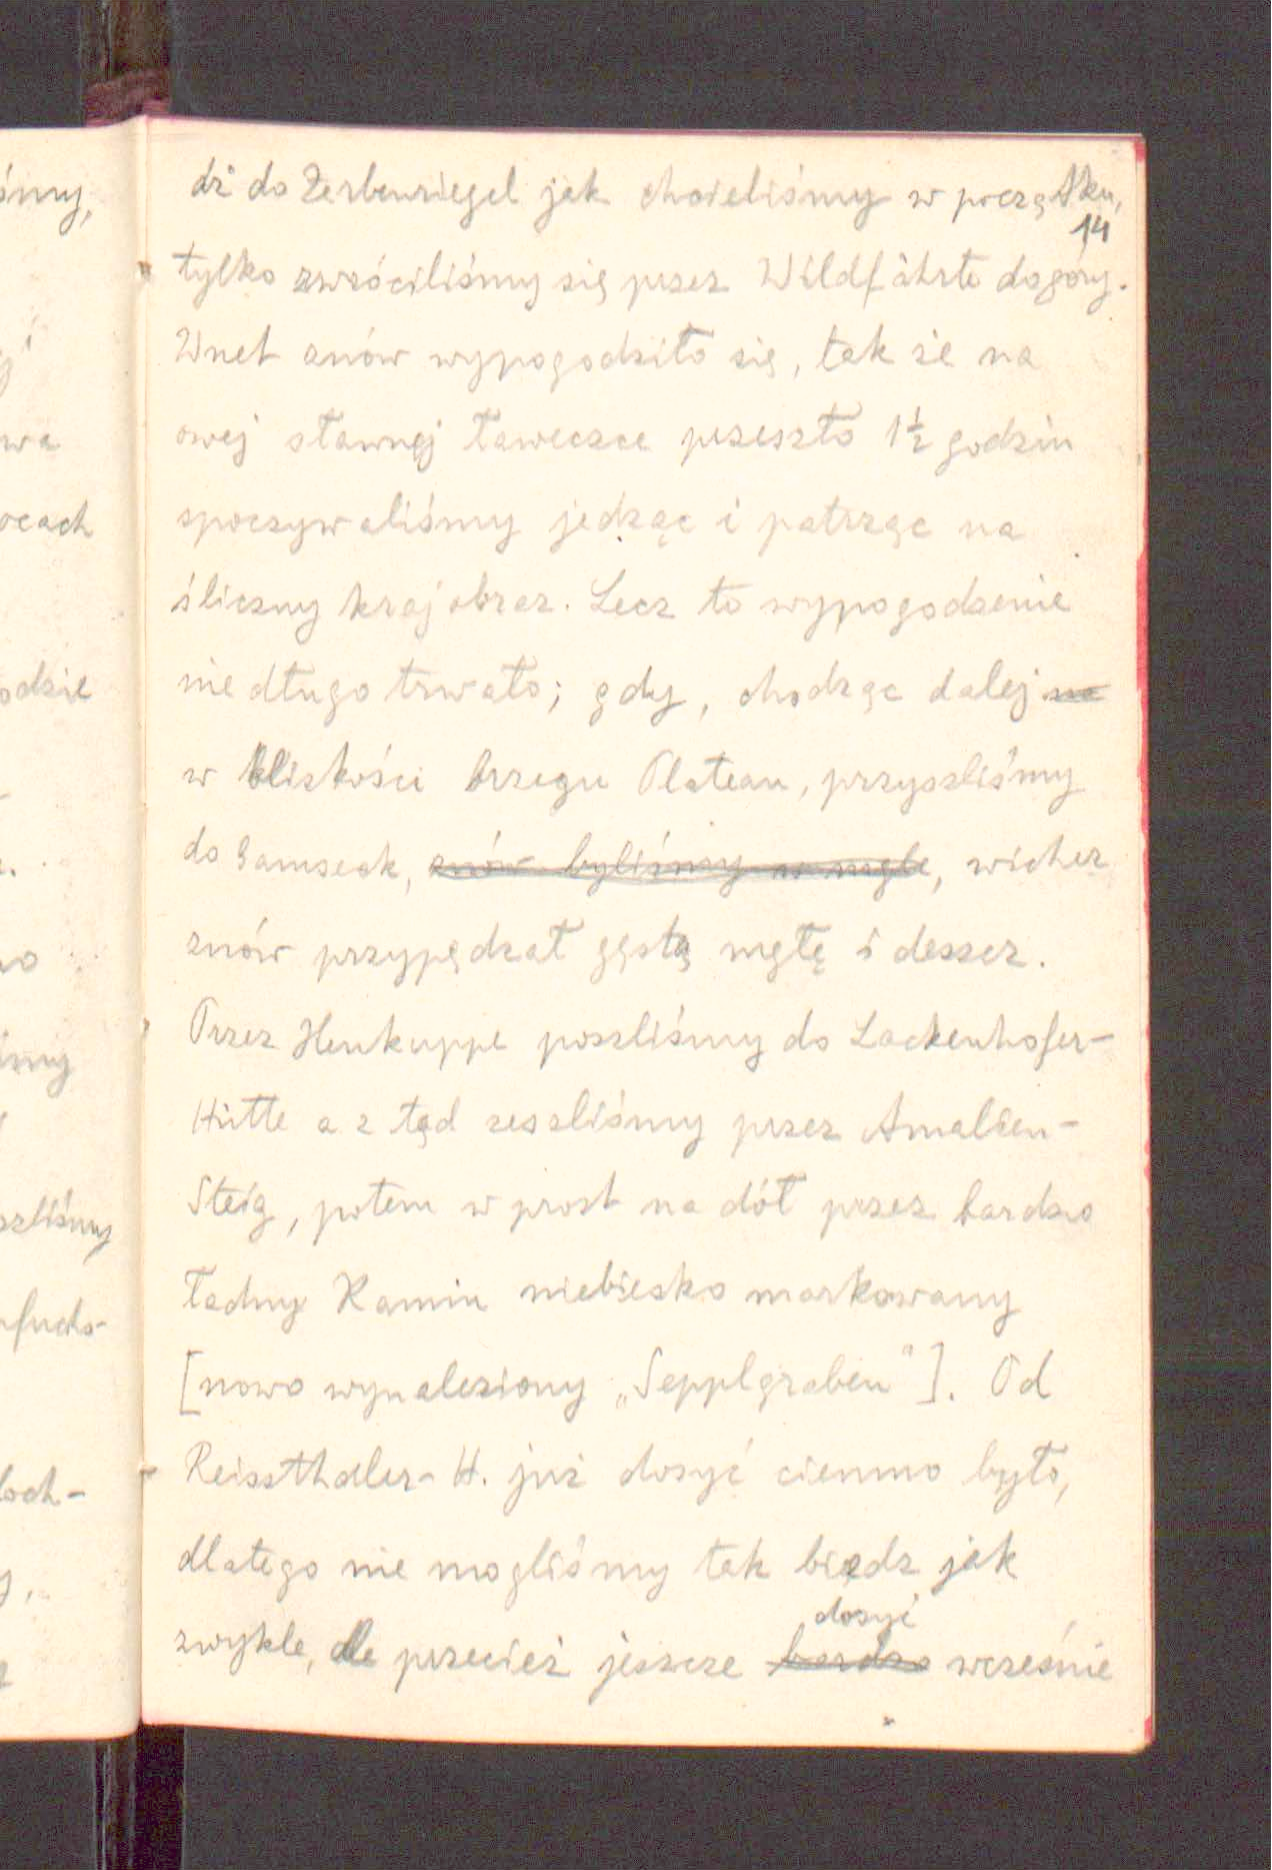 dź do Zerbenriegel jak chcieliśmy w początku,
14
tylko zwróciliśmy się przez Wildfährte dogóry.
Wnet znów wypogodziło się, tak że na
owej sławnej ławeczce przeszło 1½ godzin
spoczywaliśmy jedząc i patrząc na
śliczny krajobraz. Lecz to wypogodzenie
nie długo trwało; gdy, chodząc dalej na
w bliskości brzegu Plateau, przyszliśmy
do Gamseck, znów byliśmy w mgle, wicher
znów przypędzał gęstą mgłę i deszcz.
Przez Heukuppe poszliśmy do Lackenhofer-
Hütte a z tąd zeszliśmy przez Amalien-
Steig, potem w prost na dół przez bardzo
ładny Kamin niebiesko markowany
[nowo wynaleziony „Sepplgraben“]. Od
Reissthaler-H. już dosyć ciemno było,
dlatego nie mogliśmy tak biedz jak
dosyć
zwykle, ale przecież jeszcze bardzo wcześnie
śmy,
wa
ocach
odzie
szliśmy